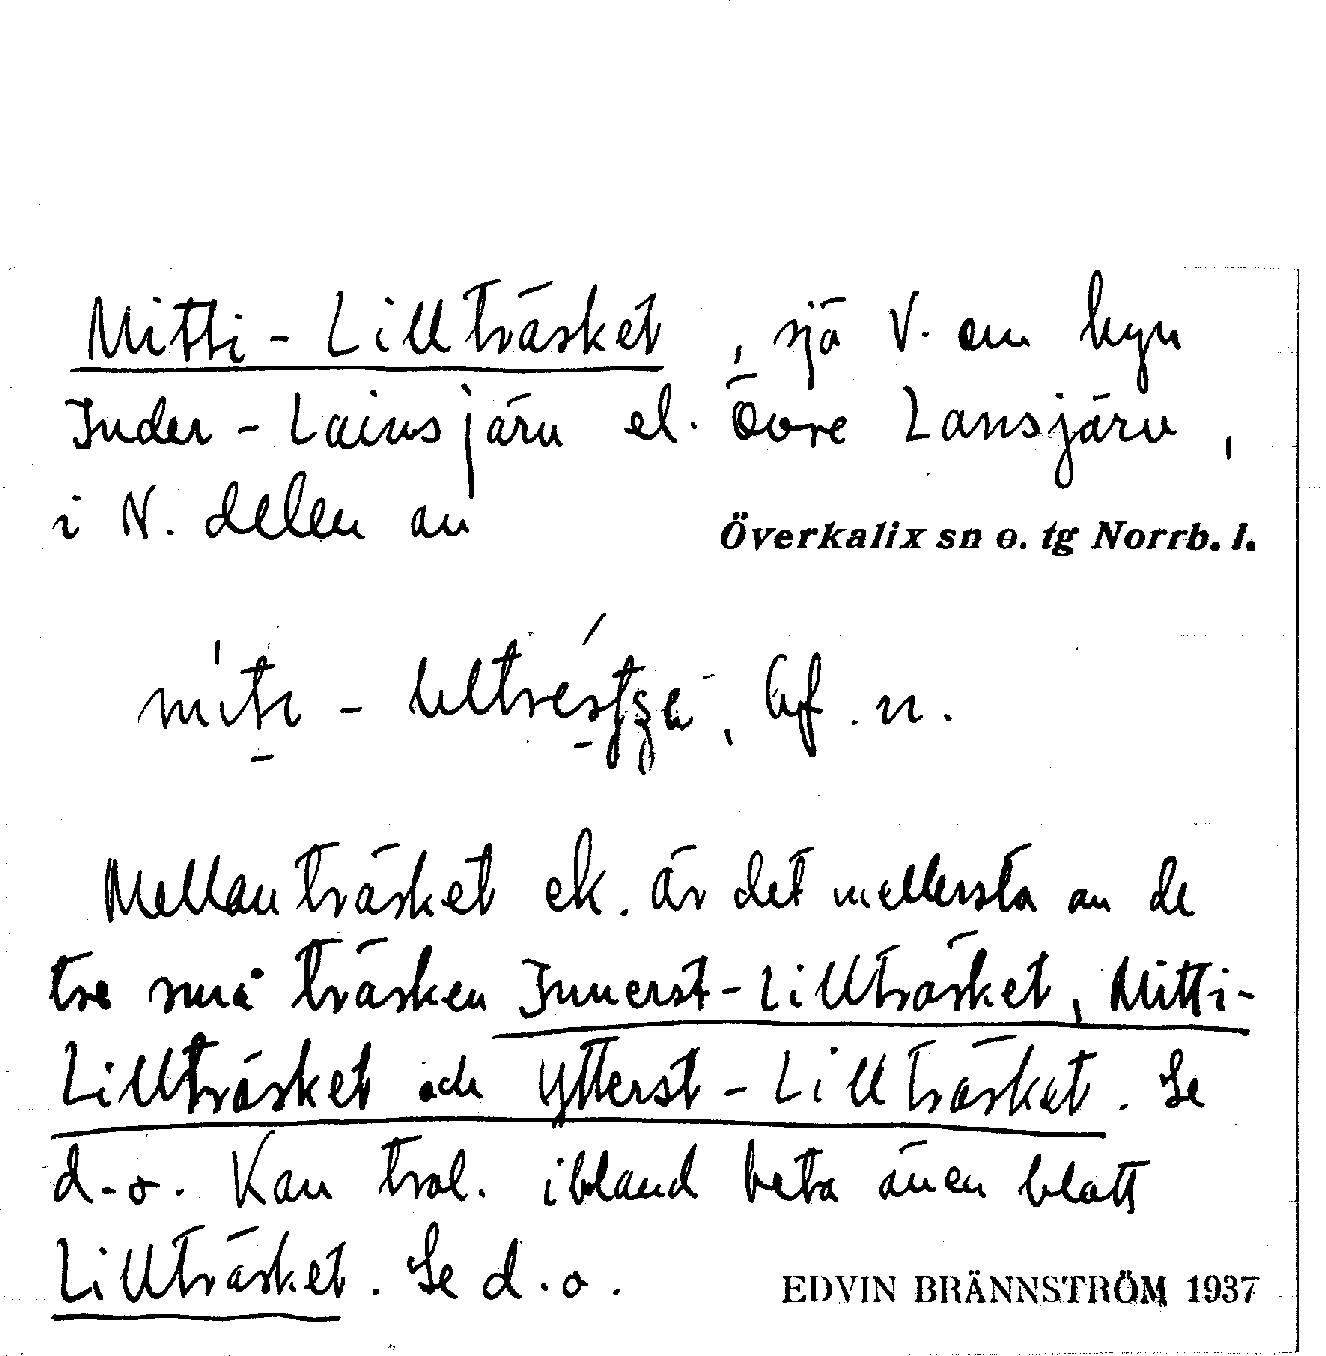 Mitti-Lillträsket, sjö V. om byn
Inder-Lainsjärv el. Övre Lansjärv,
i N. delen av Överkalix sn o. tg Norrb. l.
best. f. n.
Mellanträsket ek. Är det mellersta av de
tre små träsken Innerst-Lillträsket, Mitti-
Lillträsket och Ytterst-Lillträsket. Se
d.o. Kan trol. ibland heta även blott
Lillträsket. Se d.o. EDVIN BRÄNNSTRÖM 1937